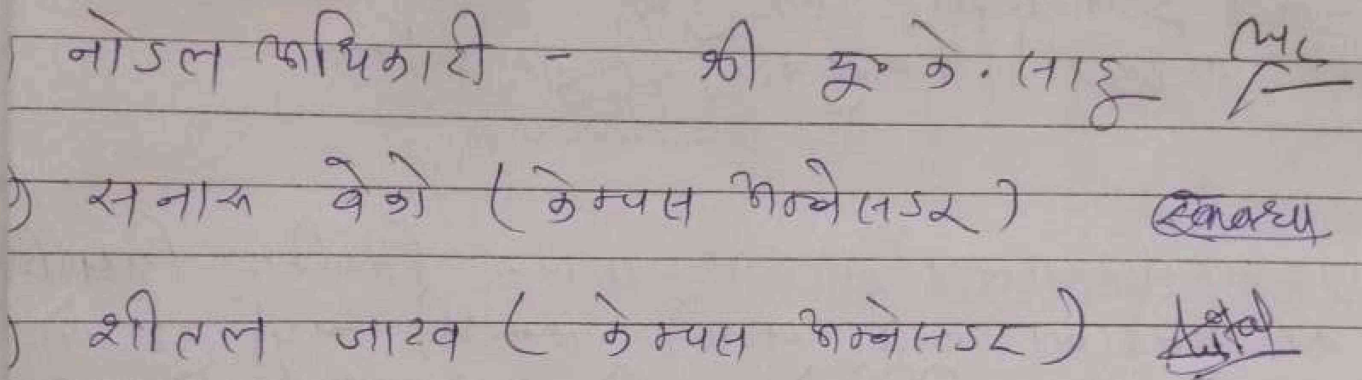 नोडल अधिकारी - श्री यू. के. साहू
) सनारू वेको (केम्पस अम्बेसडर)
) शीतल जाटव (केम्पस अम्बेसडर)